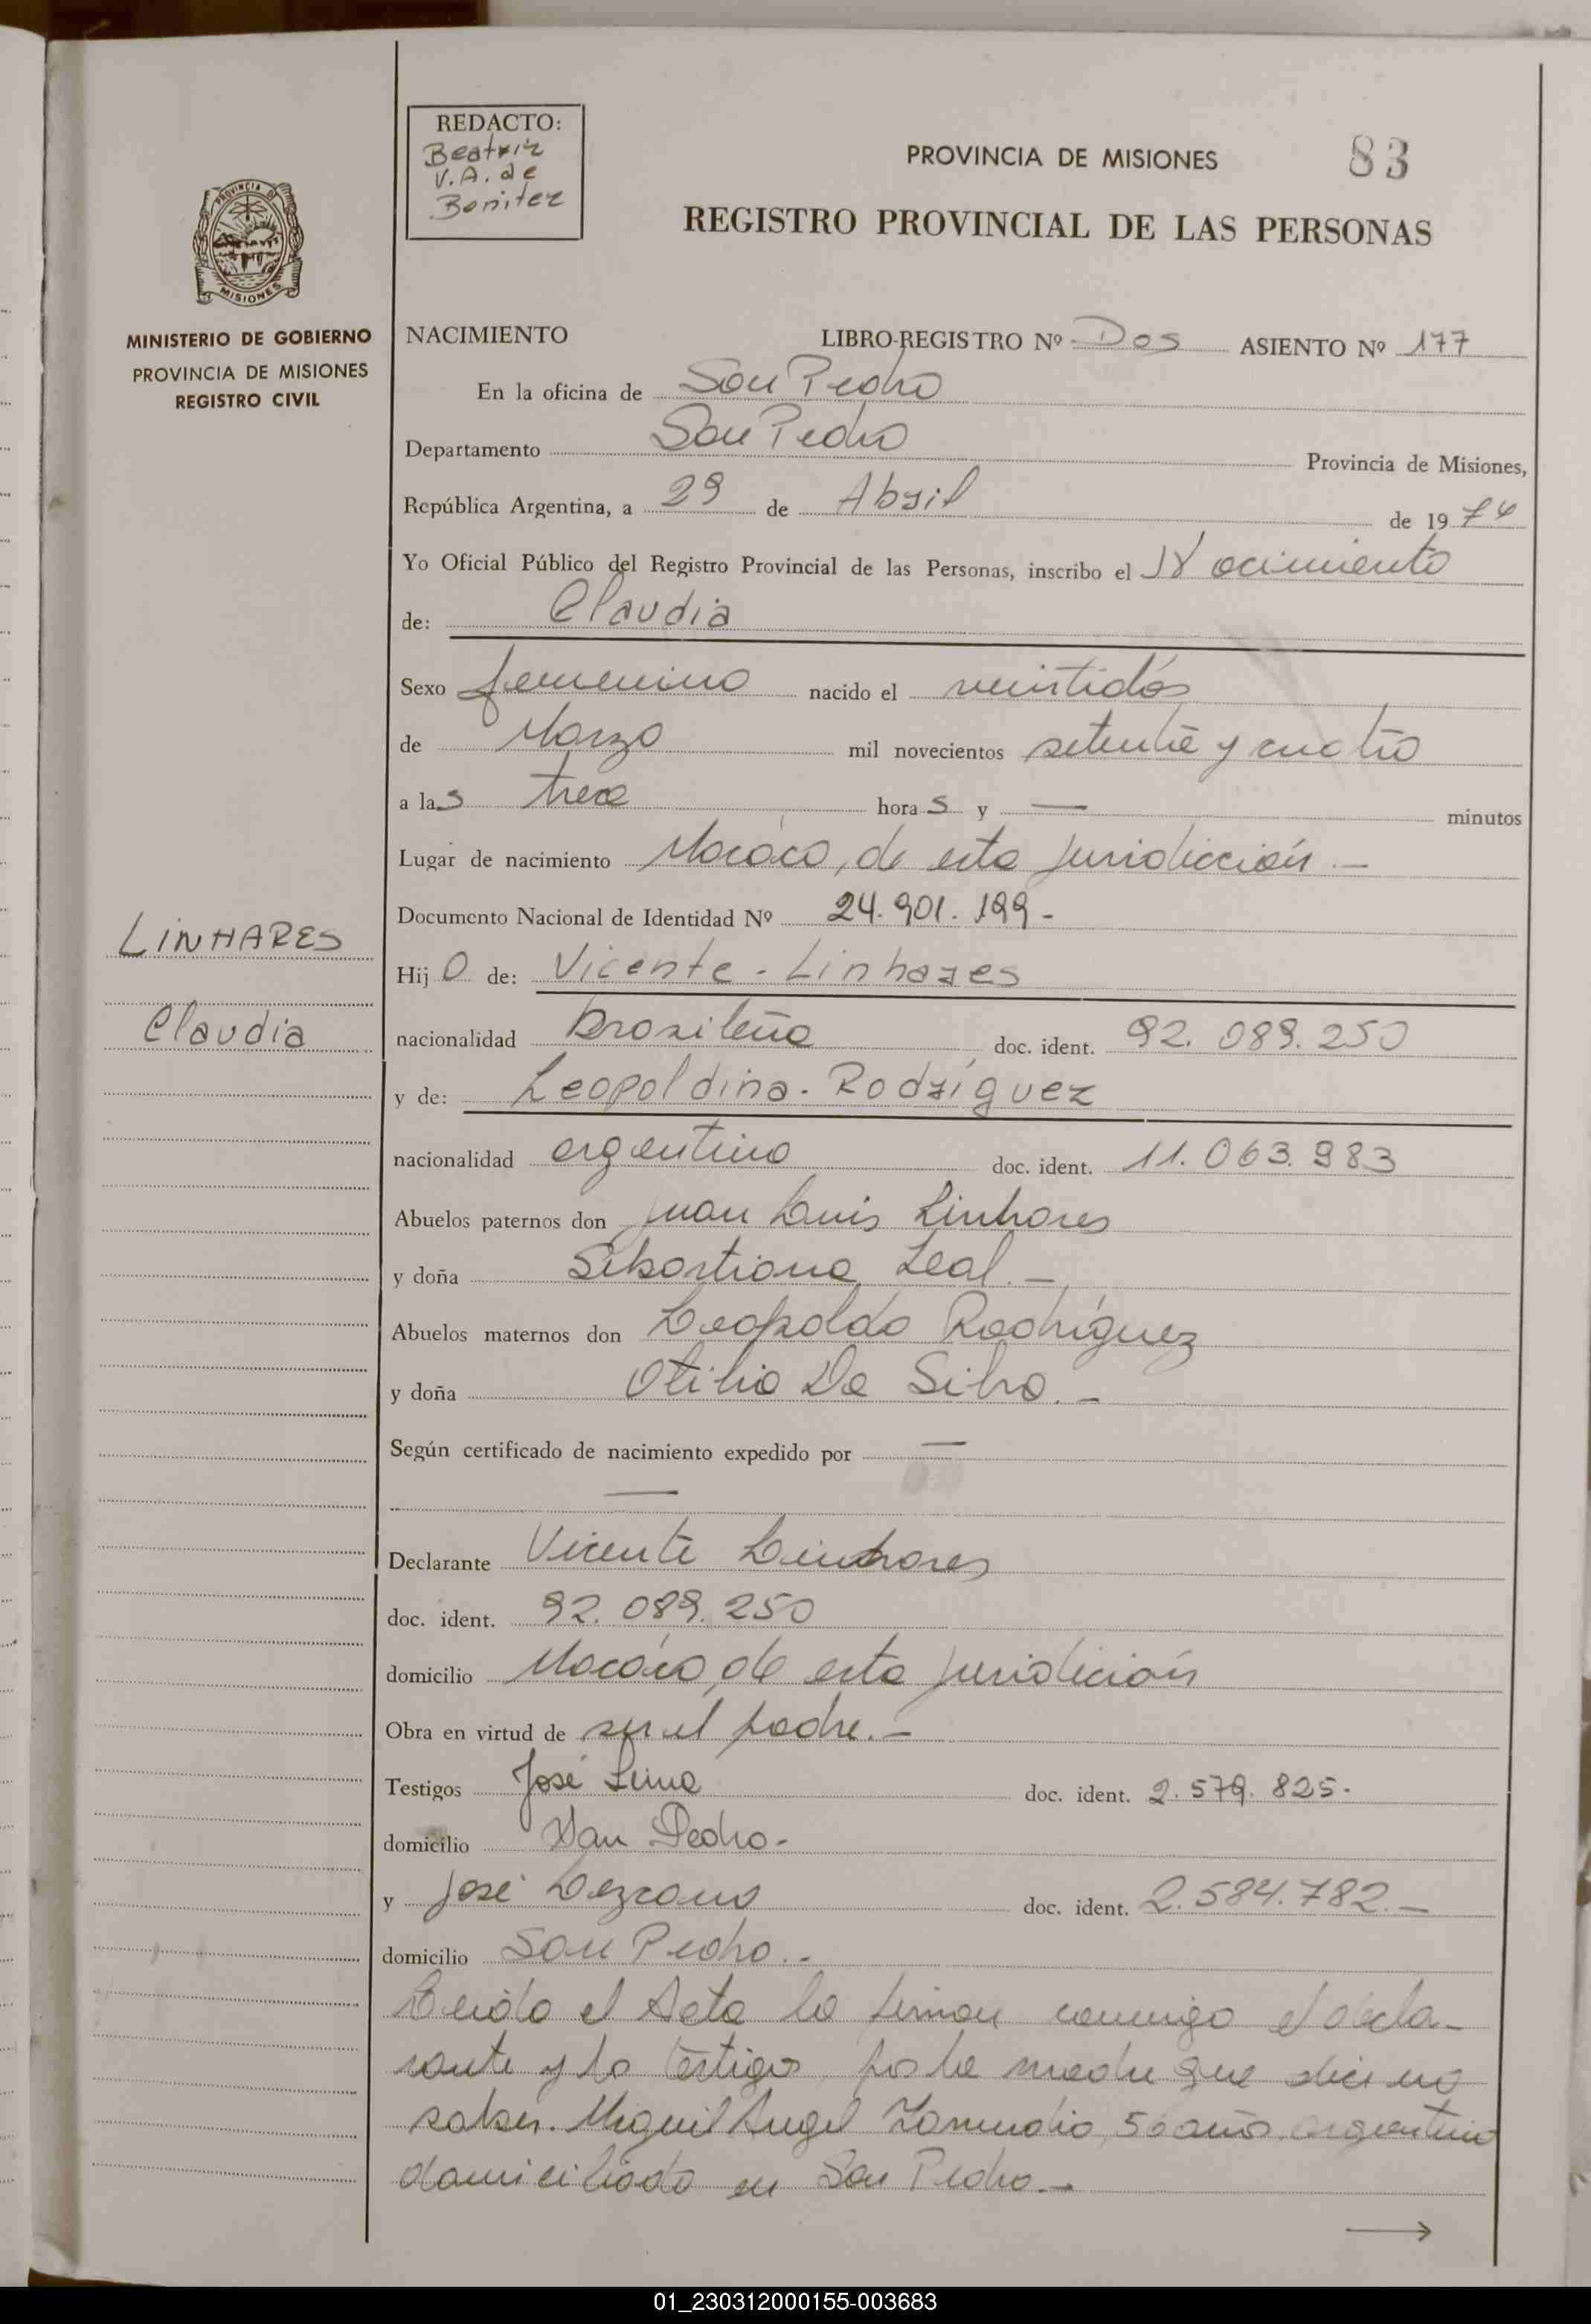 REDACTO:
Beatriz
V.A. de
Benitez
PROVINCIA DE MISIONES
83
REGISTRO PROVINCIAL DE LAS PERSONAS
PROVINCIA DE
MISIONES
MINISTERIO DE GOBIERNO
PROVINCIA DE MISIONES
REGISTRO CIVIL
NACIMIENTO LIBRO-REGISTRO Nº Dos ASIENTO Nº 177
En la oficina de San Pedro
Departamento San Pedro Provincia de Misiones,
República Argentina, a 29 de Abril de 1974
Yo Oficial Público del Registro Provincial de las Personas, inscribo el Nacimiento
de: Claudia
Sexo femenino nacido el veintidós
de Marzo mil novecientos setenta y cuatro
a las trece horas y — minutos
Lugar de nacimiento Macaco, de esta jurisdicción.—
Documento Nacional de Identidad Nº 24.901.199-
LINHARES
Hijo de: Vicente - Linhares
Claudia
nacionalidad brasileña doc. ident. 92.089.250
y de: Leopoldina - Rodríguez
nacionalidad argentina doc. ident. 11.063.983
Abuelos paternos don Juan Luis Linhares
y doña Sebastiana Leal.—
Abuelos maternos don Leopoldo Rodríguez
y doña Otilia Da Silva.—
Según certificado de nacimiento expedido por —
—
Declarante Vicente Linhares
doc. ident. 92.089.250
domicilio Macaco, de esta jurisdición
Obra en virtud de ser el padre.—
Testigos José Lima doc. ident. 2.579.825.
domicilio San Pedro-
y José Lezcano doc. ident. 2.584.782.—
domicilio San Pedro.-
Leída el Acta la firman conmigo el decla-
rante y los testigos, por la madre que dice no
saber. Miguel Angel Zamudio, 50 años, argentino
domiciliado en San Pedro.—
→
01_230312000155-003683